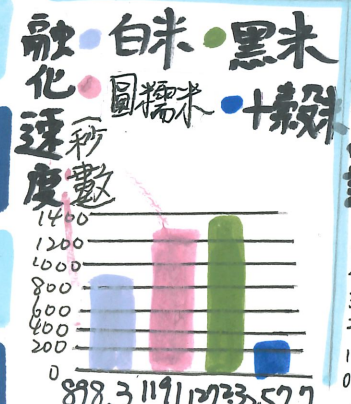 融化速度(秒數)
白米 黑米
圓糯米 十穀米
1400
1200
1000
800
600
400
200
0
898.3 1191 1273.3 257.7